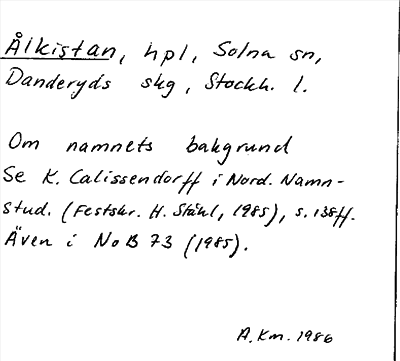 Ålkistan, hpl, Solna sn,
Danderyds skg, Stockh. l.
Om namnets bakgrund
Se K. Calissendorff i Nord. Namn-
stud. (Festskr. H. Ståhl, 1985), s. 138ff.
Även i NoB 73 (1985).
A. Km. 1986